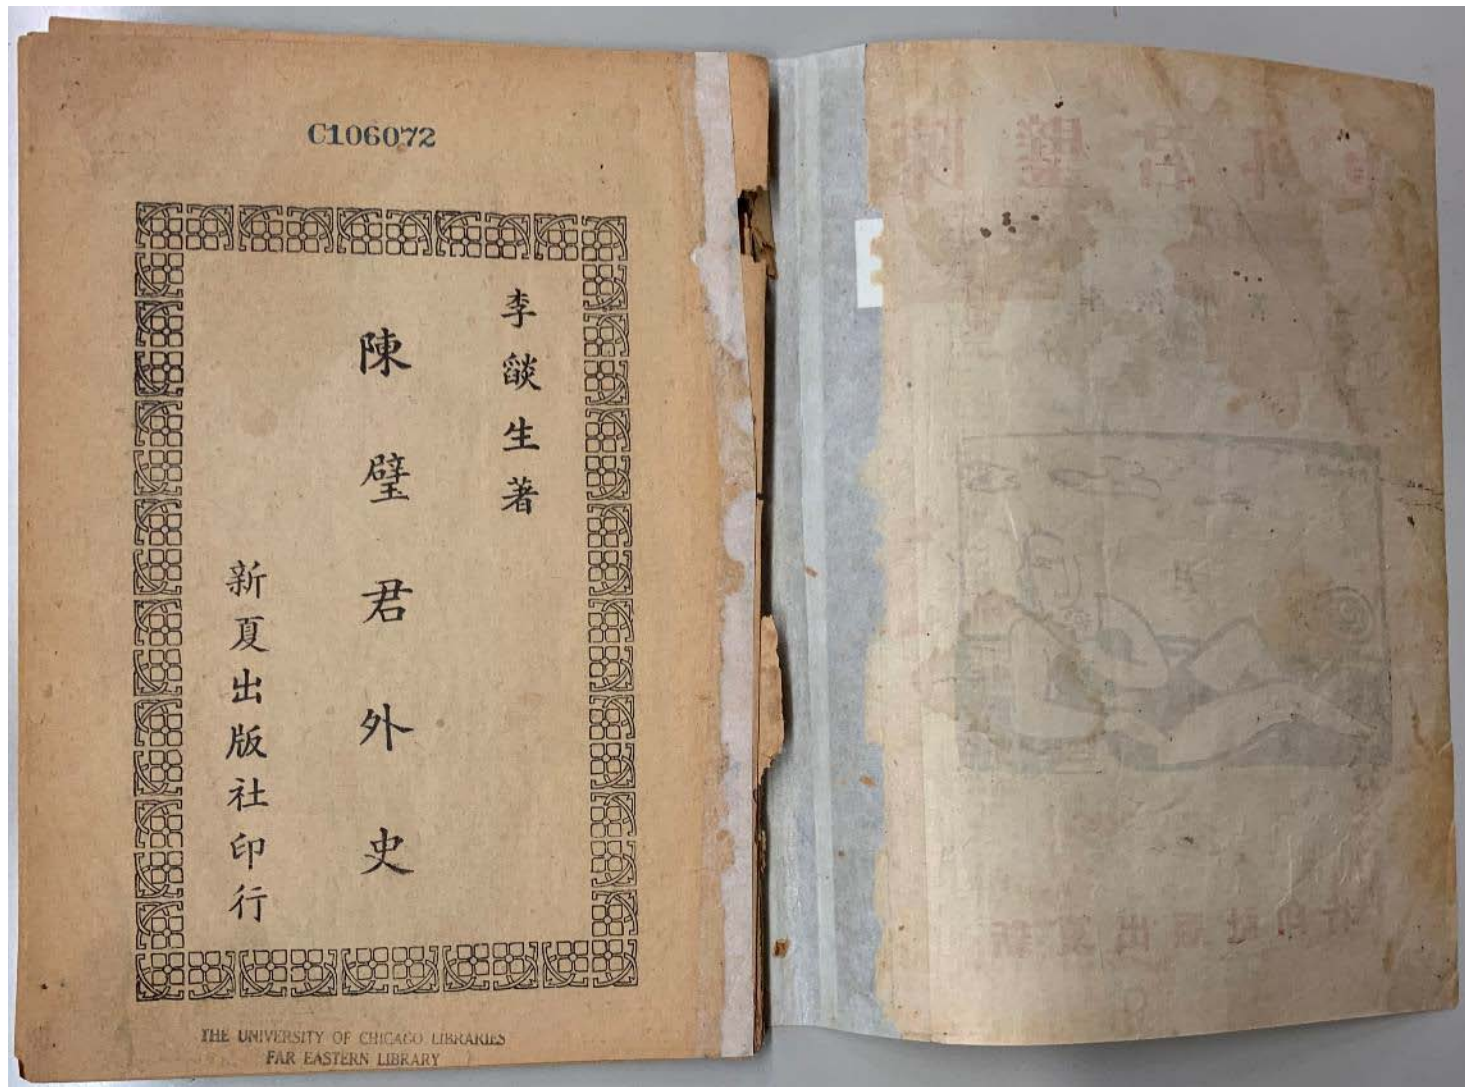 C106072
李燄生著
陳璧君外史
新夏出版社印行
THE UNIVERSITY OF CHICAGO LIBRARIES
FAR EASTERN LIBRARY
陳璧君外史
新夏出版社印行